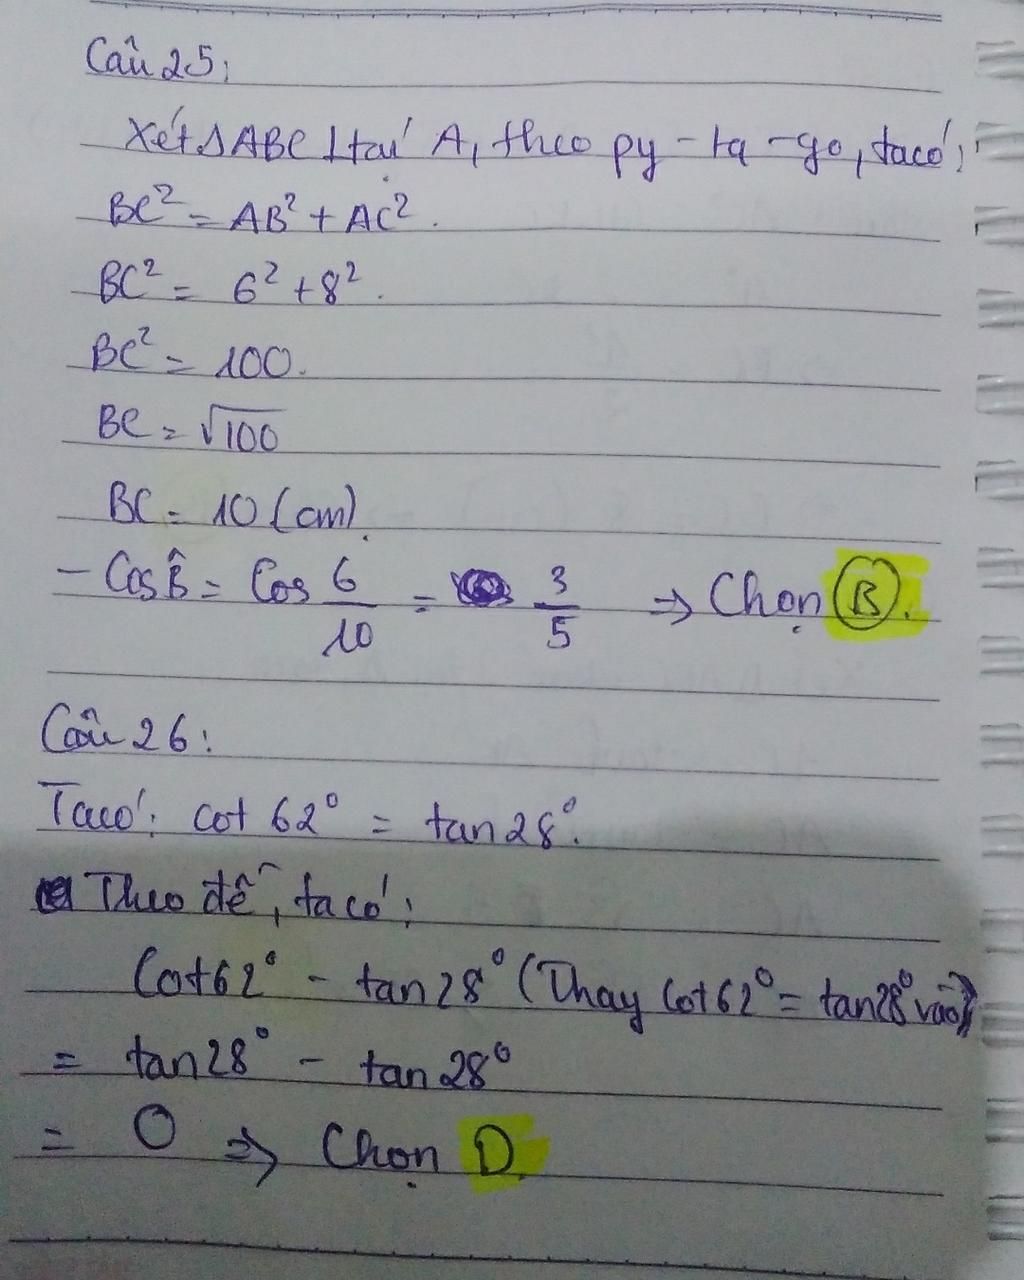 Câu 25:
Xét ΔABC ⊥ tại A, theo py-ta-go, ta có:
BC² = AB² + AC².
BC² = 6² + 8².
BC² = 100.
BC = √100
BC = 10 (cm).
- Cos B̂ = Cos 6/10 = 3/5 => Chọn B.
Câu 26:
Ta có: cot 62° = tan 28°.
Theo đề, ta có:
Cot 62° - tan 28° (Thay Cot 62° = tan 28° vào)
= tan 28° - tan 28°
= 0 => Chọn D.